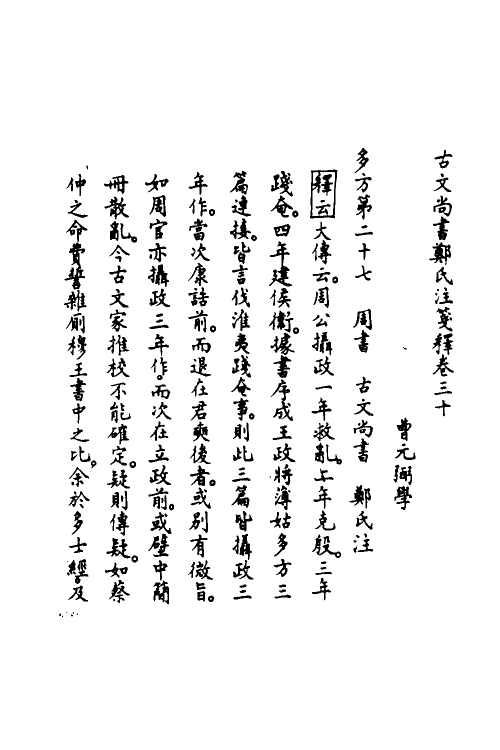 古文尚書鄭氏注箋釋卷三十
曹元弼學
多方第二十七　周書　古文尚書　鄭氏注
釋云大傳云。周公攝政一年救亂。二年克殷。三年
踐奄。四年建侯衞。據書序成王政將薄姑多方三
篇連接。皆言伐淮夷踐奄事。則此三篇皆攝政三
年作。當次康誥前。而退在君奭後者。或别有微旨。
如周官亦攝政三年作。而次在立政前。或壁中簡
冊散亂。今古文家推校不能確定。疑則傳疑。如蔡
仲之命費誓雜厠穆王書中之比。余於多士經及